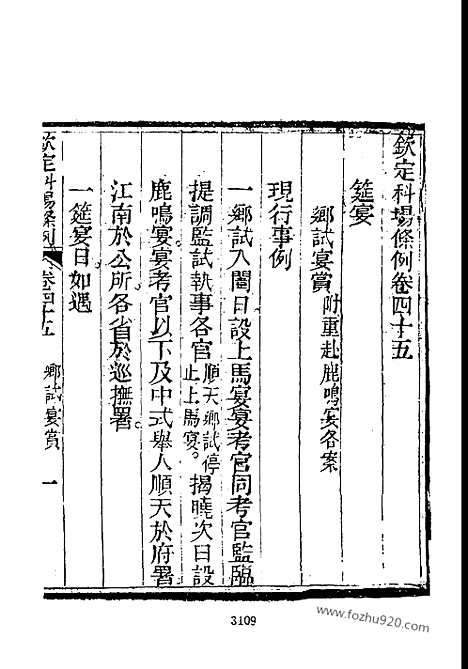 欽定科場條例卷四十五
筵宴
鄉試宴賞 附重赴鹿鳴宴各案
現行事例
一鄉試入闈日設上馬宴宴考官同考官監臨
提調監試執事各官 順天鄉試停止上馬宴。 揭曉次日設
鹿鳴宴宴考官以下及中式舉人順天於府署
江南於公所各省於巡撫署。
一筵宴日如遇
欽定科場條例 卷四十五 鄉試宴賞 一
3109
www.fozhu920.com